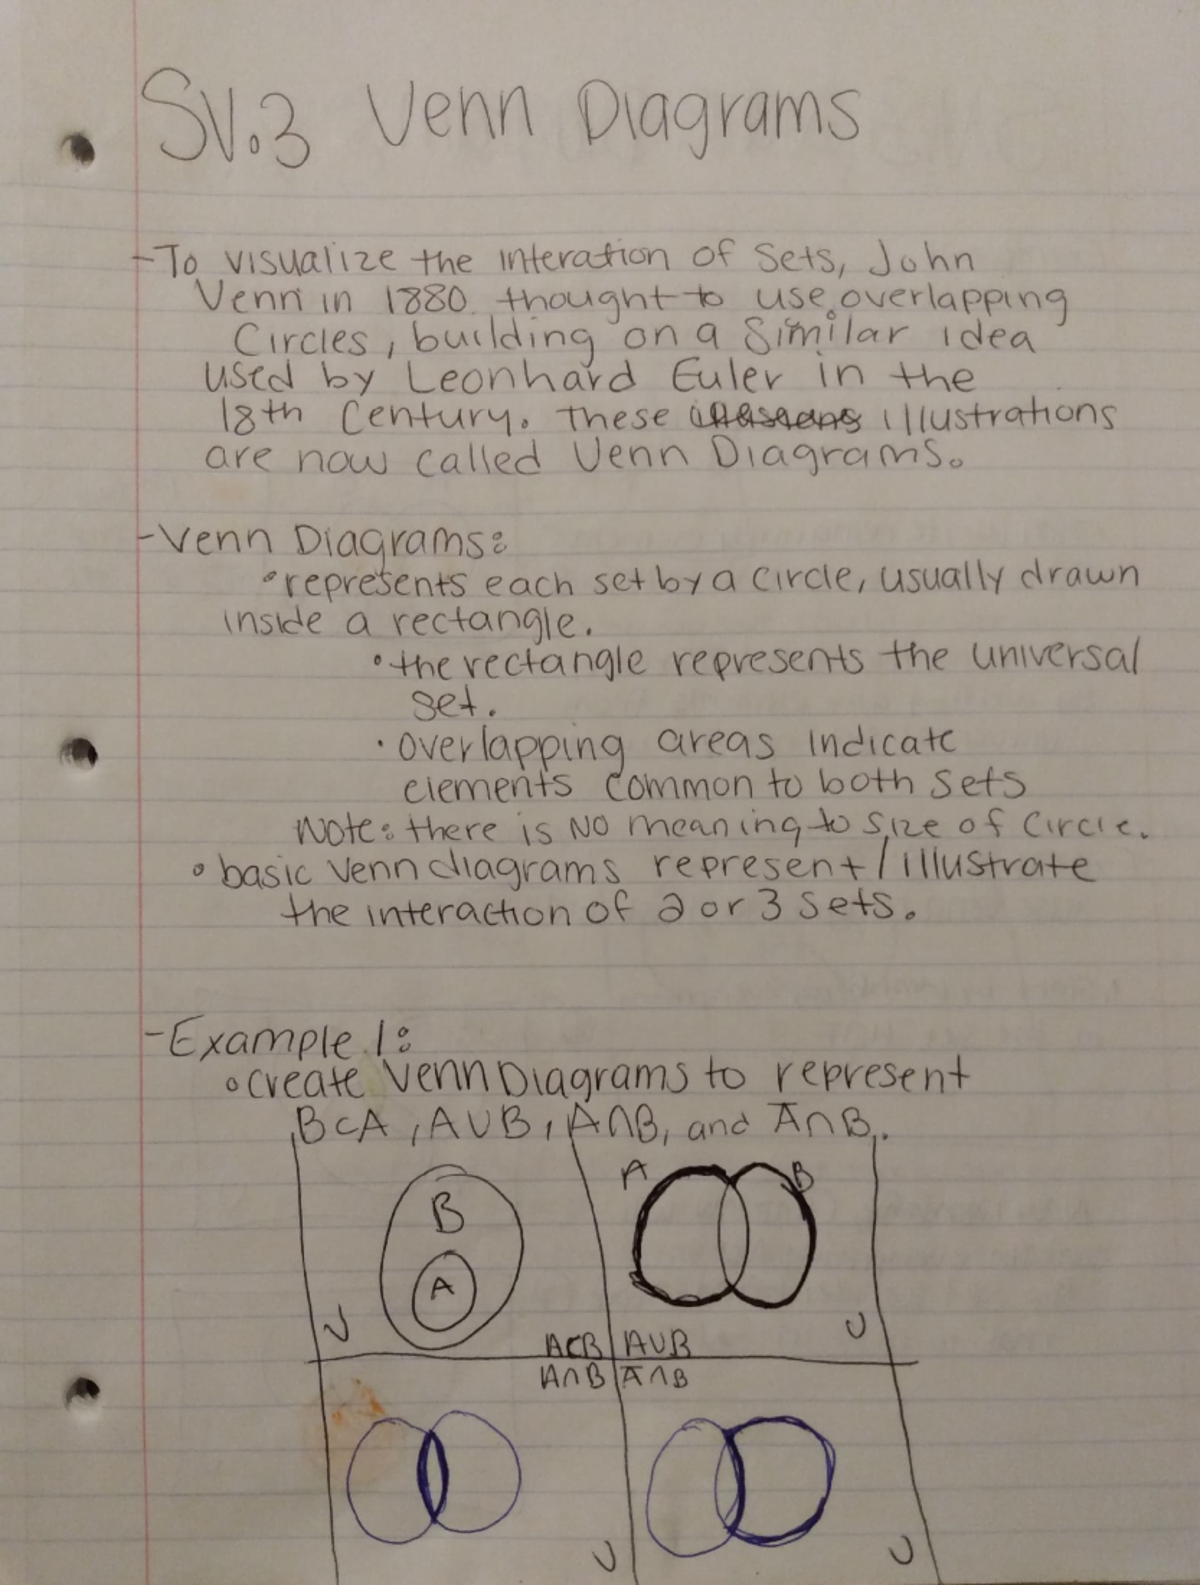 SV.3 Venn Diagrams
-To visualize the interation of sets, John
Venn in 1880 thought to use overlapping
Circles, building on a similar idea
used by Leonhard Euler in the
18th Century. These illustrations
are now called Venn Diagrams.
-Venn Diagrams:
•represents each set by a circle, usually drawn
inside a rectangle.
•the rectangle represents the universal
set.
•overlapping areas indicate
elements common to both sets
Note: there is NO meaning to size of circle.
•basic Venn diagrams represent/illustrate
the interaction of 2 or 3 sets.
-Example 1:
•create Venn Diagrams to represent
B⊂A, A∪B, A∩B, and A̅∩B.
A B
B
A
U U
A⊂B A∪B
A∩B A̅∩B
U U